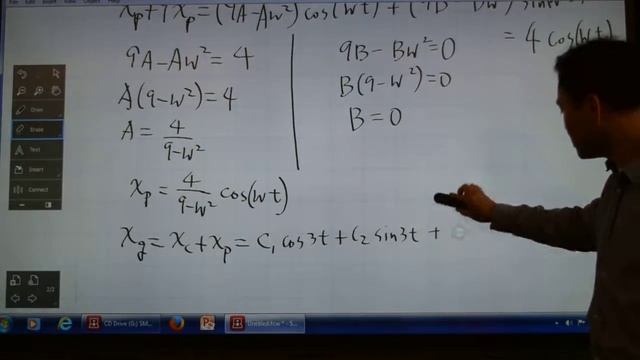 x_p + 9x_p = (9A-Aw²) cos(wt) + (9B-Bw²) sinwt
= 4 cos(wt)
9A-Aw² = 4
9B-Bw² = 0
A(9-w²) = 4
B(9-w²) = 0
A = 4/(9-w²)
B = 0
x_p = 4/(9-w²) cos(wt)
x_g = x_c + x_p = C₁ cos3t + C₂ sin3t +
Draw
Erase
Text
Insert
Connect
2/2
CD Drive (D:) SM...
Untitled.tcw * - S...